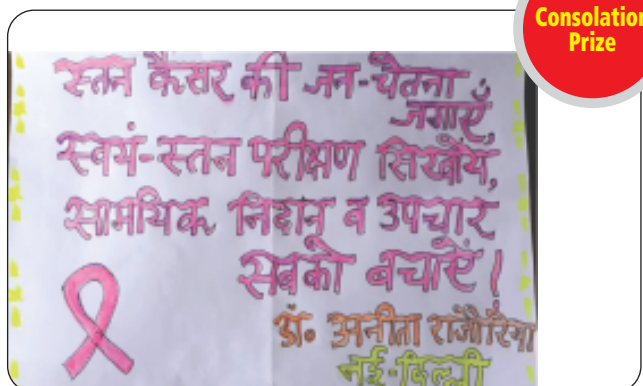 Consolation
Prize
स्तन कैंसर की जन-चेतना
जगाएँ,
स्वयं-स्तन परीक्षण सिखायें,
सामयिक निदान व उपचार
सबको बचाएं!
डॉ. अनीता राजौरिया
नई-दिल्ली